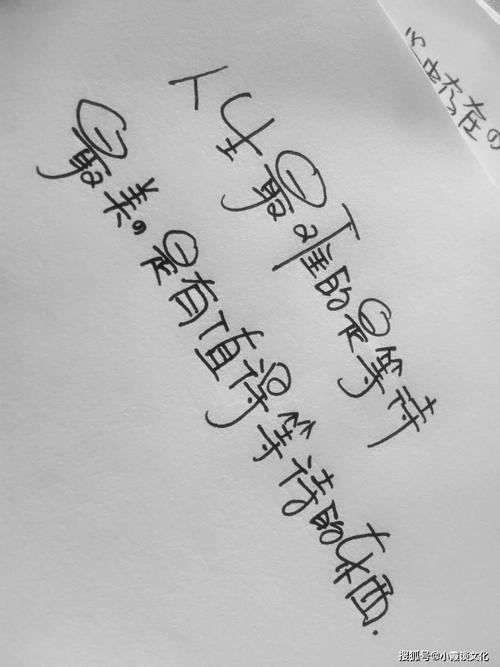 人生最难的是等待
最美。是有值得等待的东西.
搜狐号@小霞谈文化